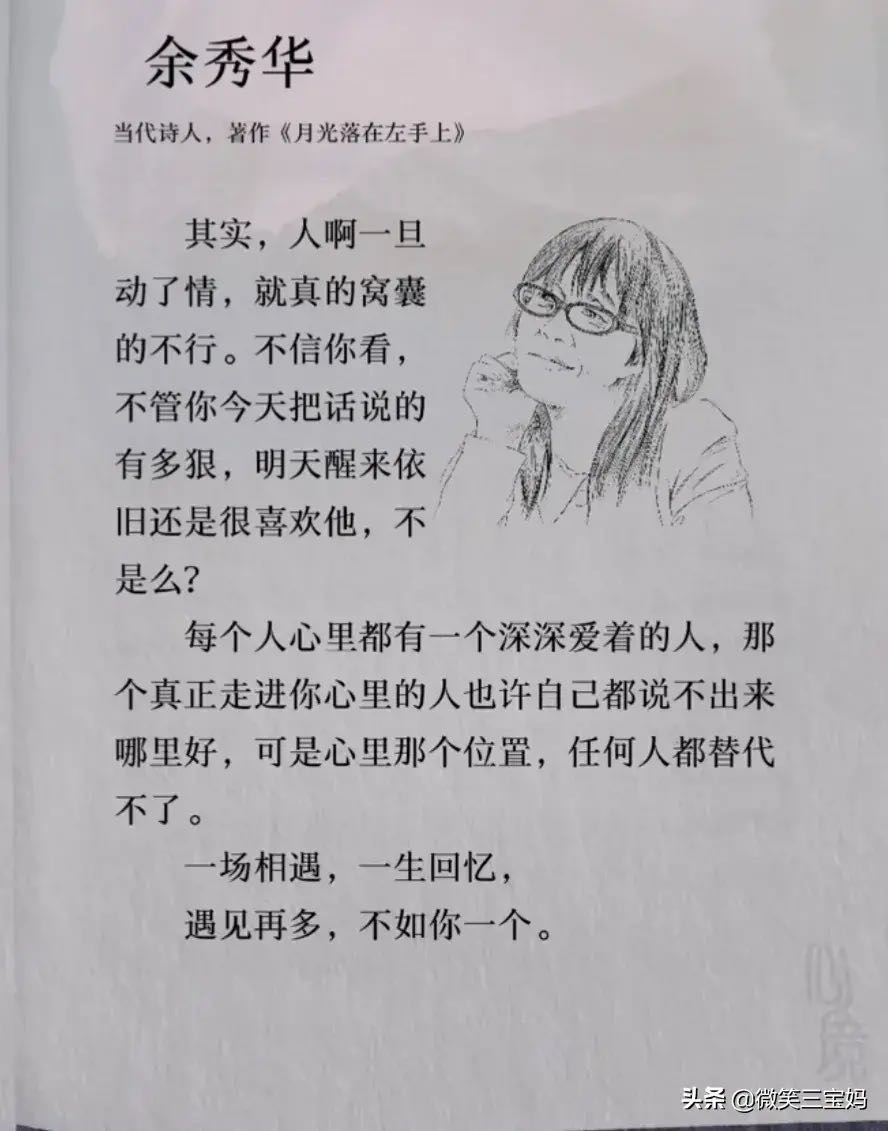 余秀华
当代诗人，著作《月光落在左手上》
其实，人啊一旦
动了情，就真的窝囊
的不行。不信你看，
不管你今天把话说的
有多狠，明天醒来依
旧还是很喜欢他，不
是么？
每个人心里都有一个深深爱着的人，那
个真正走进你心里的人也许自己都说不出来
哪里好，可是心里那个位置，任何人都替代
不了。
一场相遇，一生回忆，
遇见再多，不如你一个。
心境
头条 @微笑三宝妈